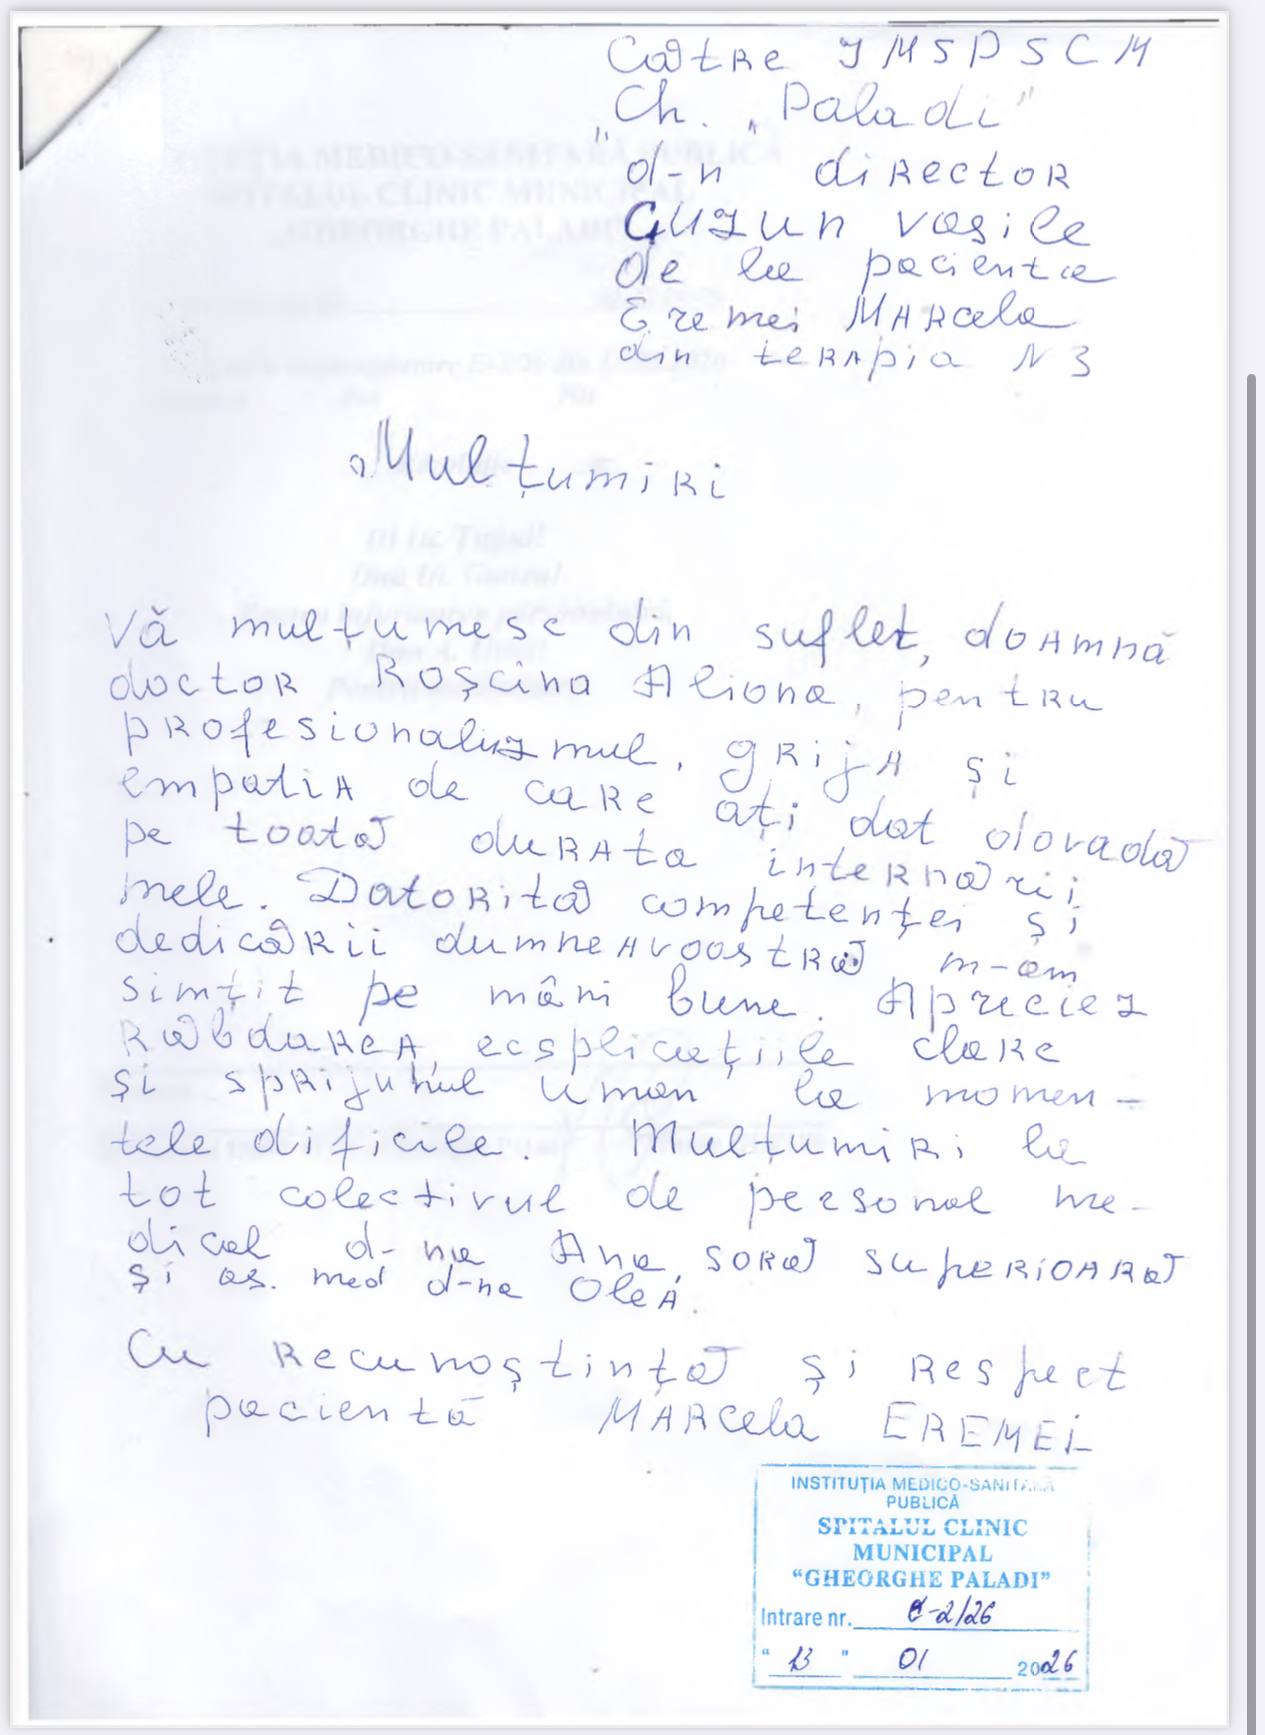 Către IMSP SCM
Gh. "Paladi"
d-n director
Guzun Vasile
de la pacienta
Eremei Marcela
din terapia N 3
Mulțumiri
Vă mulțumesc din suflet, doamnă
doctor Roșcina Aliona, pentru
profesionalizmul, grija și
empatia de care ați dat dovadă
pe toată durata internării
mele. Datorită competenței și
dedicării dumneavoastră m-am
simțit pe mâni bune. Apreciez
răbdarea, ecsplicațiile clare
și sprijunul uman la momen-
tele dificile. Mulțumiri la
tot colectivul de personal me-
dical d-na Ana, soră superioară
și as. med d-na Olea.
Cu recunoștință și respect
pacientă Marcela EREMEI
INSTITUȚIA MEDICO-SANITARĂ
PUBLICĂ
SPITALUL CLINIC
MUNICIPAL
"GHEORGHE PALADI"
Intrare nr. -2/26
"13" 01 2026